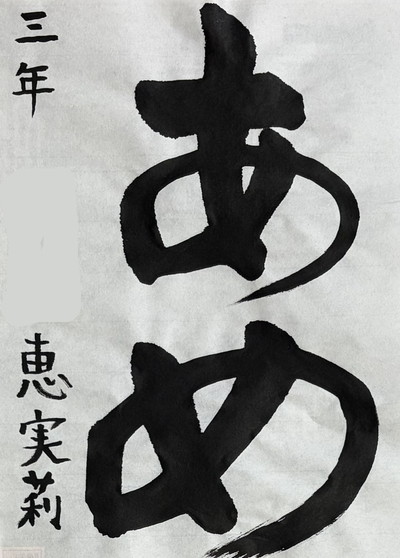 あめ
三年
恵実莉